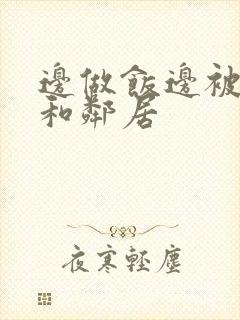 邊做飯邊被
和鄰居
夜寒輕塵